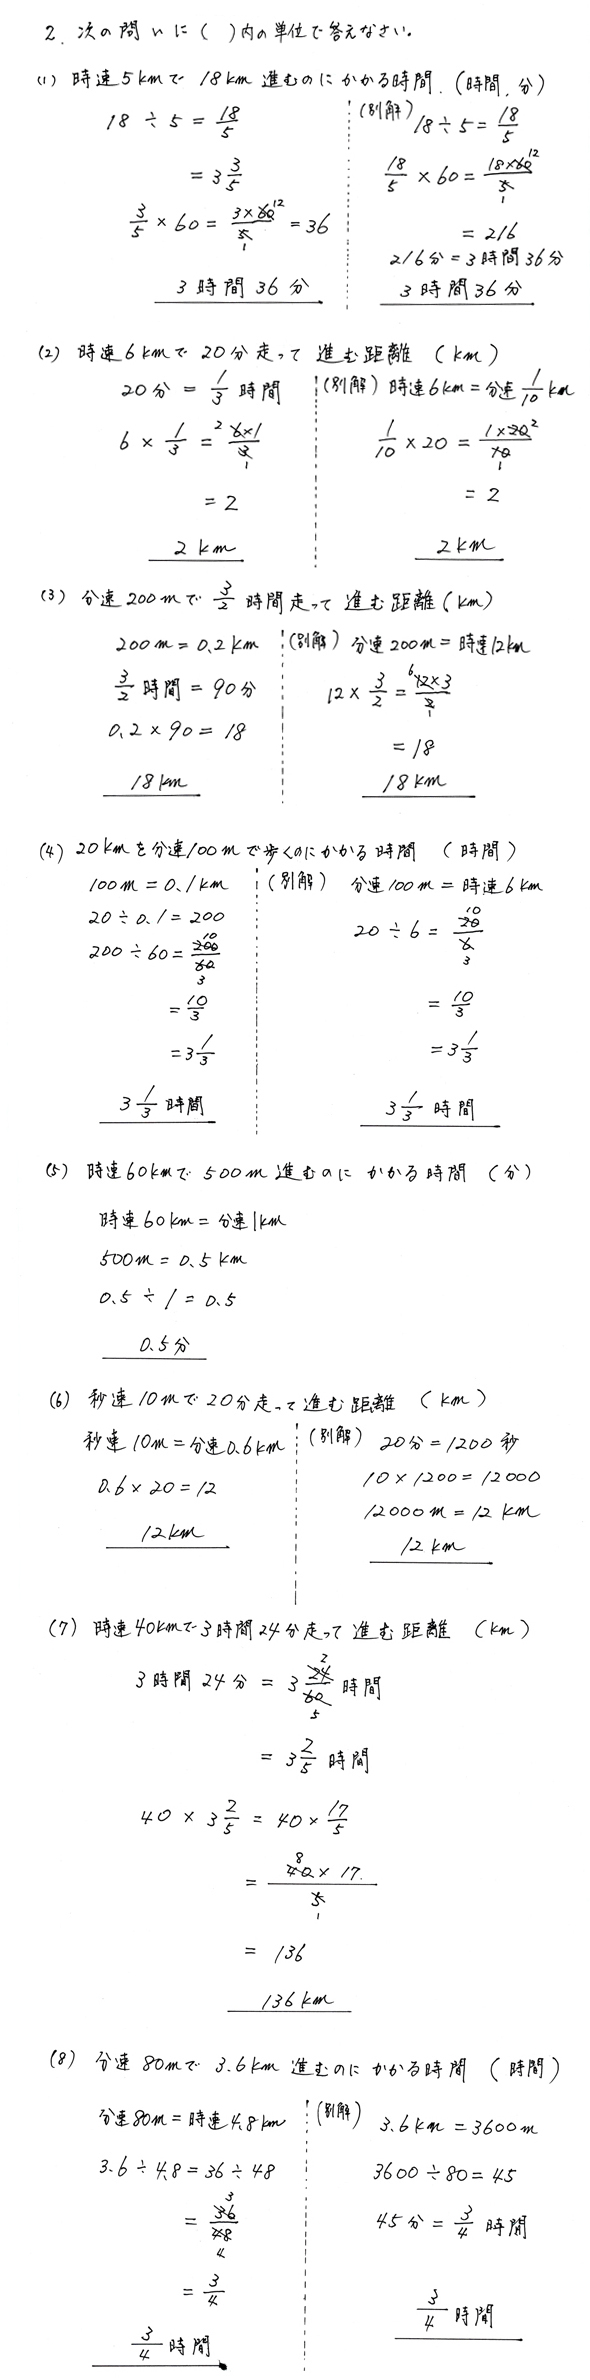 2. 次の問いに( )内の単位で答えなさい。
(1) 時速5kmで 18km 進むのにかかる時間. (時間, 分)
18 ÷ 5 = 18/5
= 3 3/5
3/5 × 60 = 3×60/5 = 36
12
1
3時間36分
(別解) 18÷5 = 18/5
18/5 × 60 = 18×60/5
12
1
= 216
216分 = 3時間36分
3時間36分
(2) 時速6kmで 20分走って 進む距離 (km)
20分 = 1/3 時間
6 × 1/3 = 6×1/3
2
1
= 2
2km
(別解) 時速6km = 分速 1/10 km
1/10 × 20 = 1×20/10
2
1
= 2
2km
(3) 分速200mで 3/2 時間走って 進む距離 (km)
200m = 0.2km
3/2 時間 = 90分
0.2 × 90 = 18
18km
(別解) 分速200m = 時速12km
12 × 3/2 = 12×3/2
6
1
= 18
18km
(4) 20kmを分速100mで歩くのにかかる時間 (時間)
100m = 0.1km
20 ÷ 0.1 = 200
200 ÷ 60 = 200/60
10
3
= 10/3
= 3 1/3
3 1/3 時間
(別解) 分速100m = 時速6km
20 ÷ 6 = 20/6
10
3
= 10/3
= 3 1/3
3 1/3 時間
(5) 時速60kmで 500m 進むのに かかる時間 (分)
時速60km = 分速1km
500m = 0.5km
0.5 ÷ 1 = 0.5
0.5分
(6) 秒速10mで20分走って進む距離 (km)
秒速10m = 分速0.6km
0.6 × 20 = 12
12km
(別解) 20分 = 1200秒
10 × 1200 = 12000
12000m = 12km
12km
(7) 時速40kmで3時間24分走って進む距離 (km)
3時間24分 = 3 24/60 時間
2
5
= 3 2/5 時間
40 × 3 2/5 = 40 × 17/5
= 40×17/5
8
1
= 136
136km
(8) 分速80mで 3.6km 進むのにかかる時間 (時間)
分速80m = 時速4.8km
3.6 ÷ 4.8 = 36 ÷ 48
= 36/48
3
4
= 3/4
3/4 時間
(別解) 3.6km = 3600m
3600 ÷ 80 = 45
45分 = 3/4 時間
3/4 時間